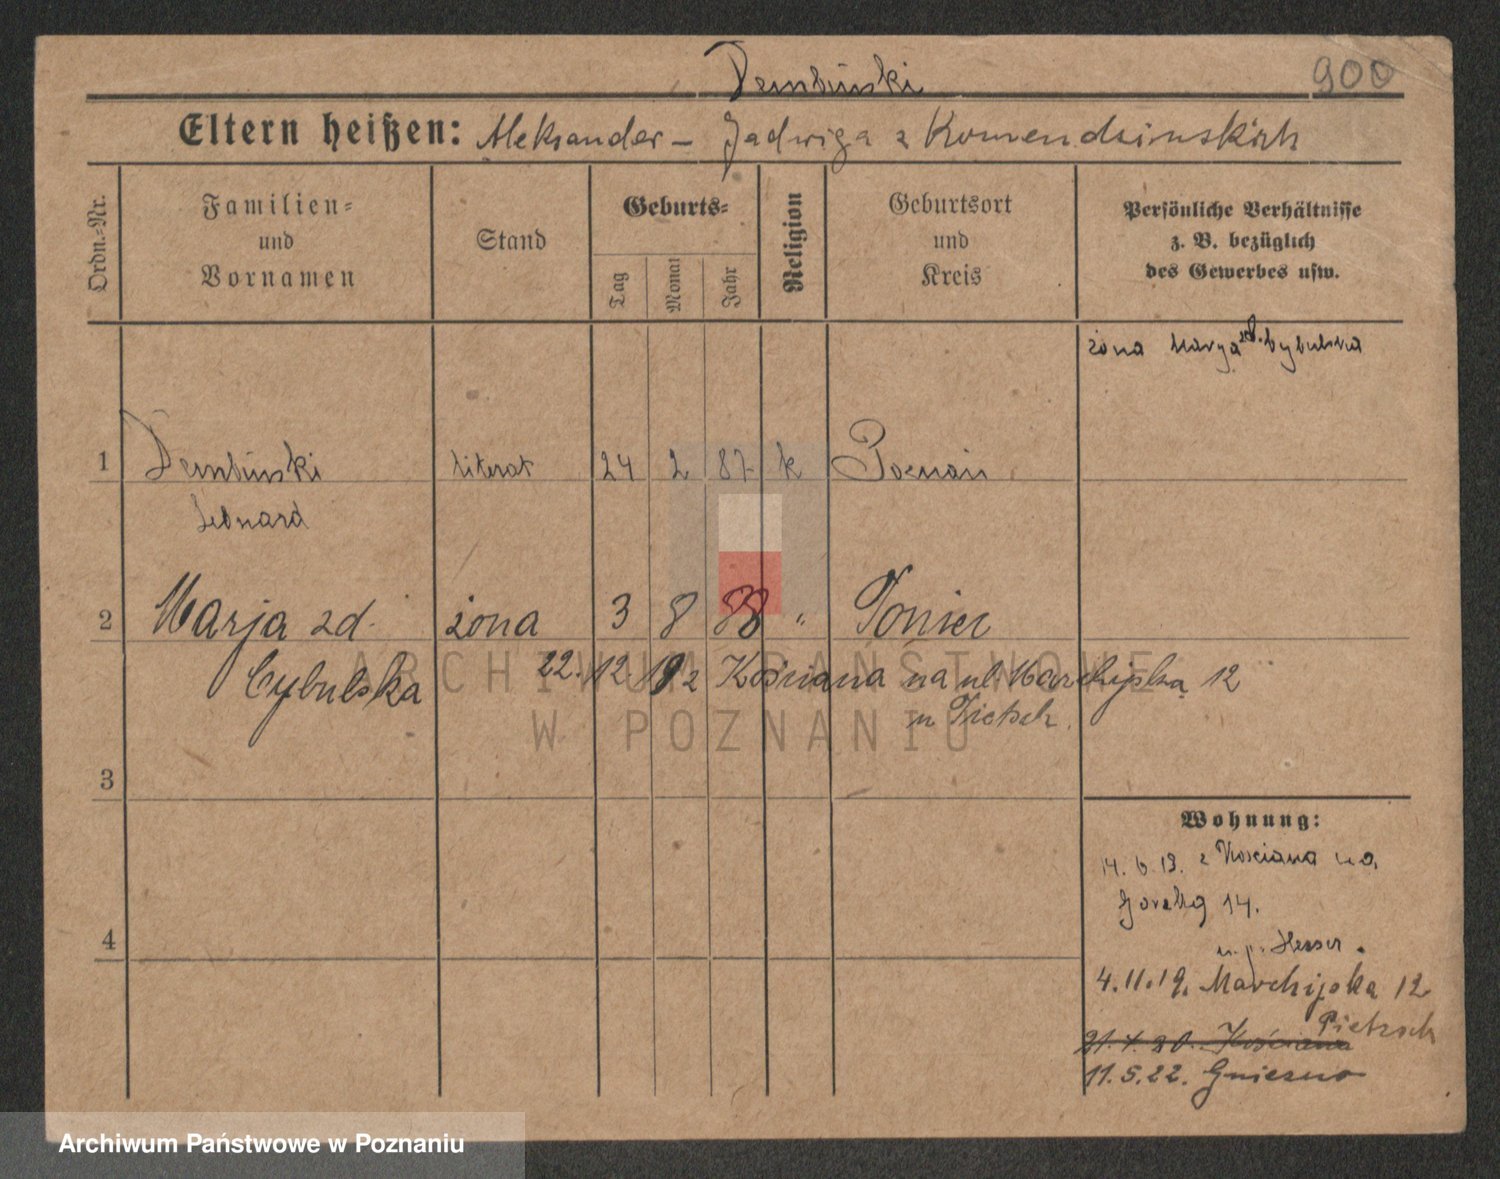 Dembiński
900
Eltern heißen: Aleksander – Jadwiga z Komendzińskich
Ordn.-Nr.
Familien- und Vornamen
Stand
Geburts-
Tag
Monat
Jahr
Religion
Geburtsort und Kreis
Persönliche Verhältnisse
z. B. bezüglich
des Gewerbes usw.
żona Marya zd. Cybulska
1 Dembiński literat 24 2 87 k Poznań
Leonard
2 Marja zd. żona 3 8 88 " Poniec
Cybulska 22.12.19 z Kościana na ul Marchijską 12
u Pietsch.
3
Wohnung:
14.6.19. z Kościana na
Górską 14.
4
4.11.19. Marchijska 12
Pietzsch
21.4.20. Kościana
11.5.22. Gniezno
ARCHIWUM PAŃSTWOWE
W POZNANIU
Archiwum Państwowe w Poznaniu